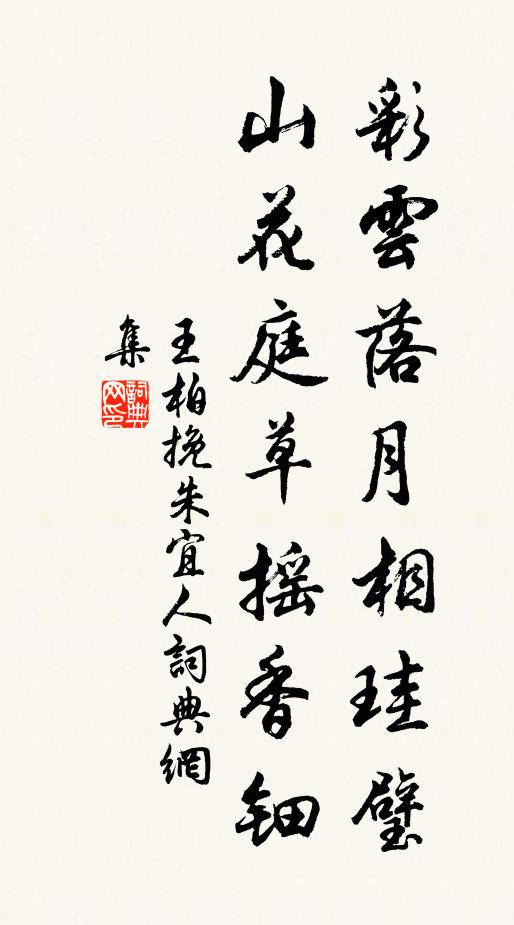 彩雲落月相珪璧
山花庭草摇香鈿
王柏挽朱宜人詞典網
集
詞典網印